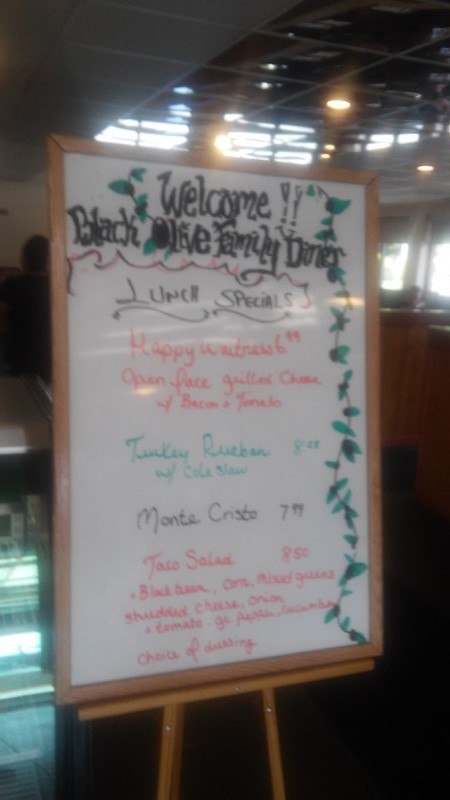 Welcome!!
Black Olive Family Diner
Lunch Specials
Happy Waitress 6.99
Open face grilled Cheese
w/ Bacon + Tomato
Turkey Rueban
w/ Cole Slaw
Monte Cristo 7.99
Taco Salad 8.50
+ Black bean, Corn, Mixed greens
shredded cheese, onion
+ tomato, gr. pepper, cucumber
choice of dressing